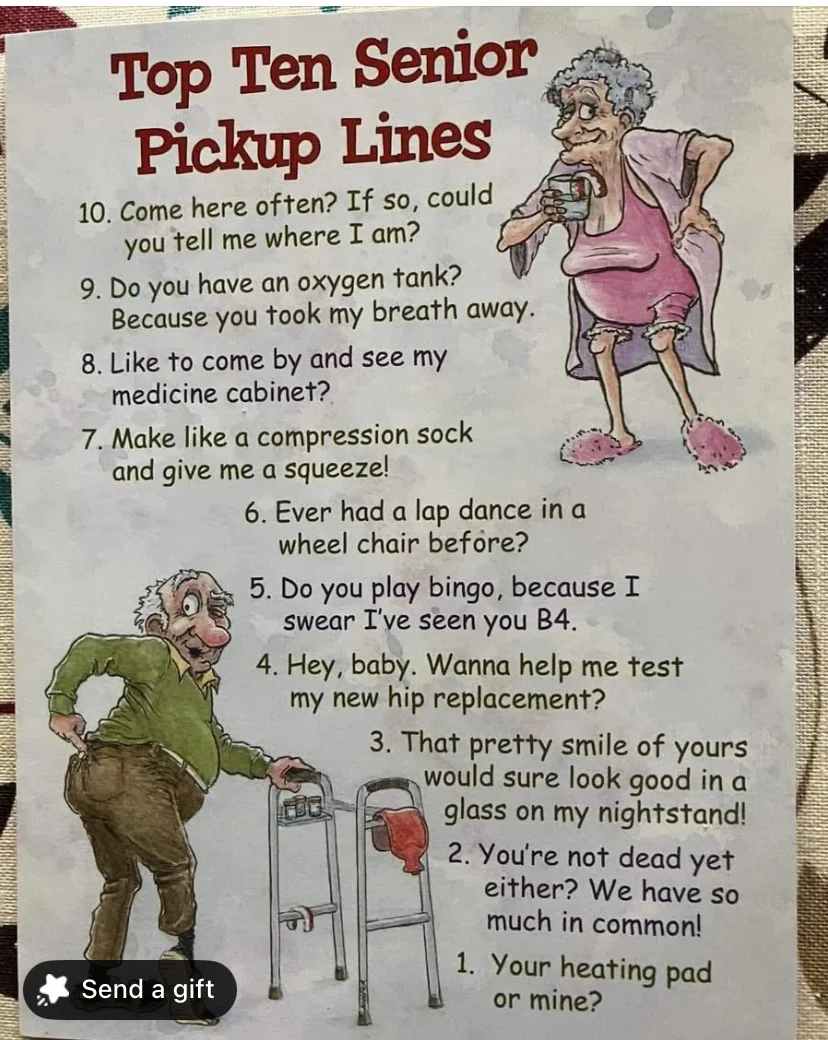 Top Ten Senior
Pickup Lines
10. Come here often? If so, could
you tell me where I am?
9. Do you have an oxygen tank?
Because you took my breath away.
8. Like to come by and see my
medicine cabinet?
7. Make like a compression sock
and give me a squeeze!
6. Ever had a lap dance in a
wheel chair before?
5. Do you play bingo, because I
swear I've seen you B4.
4. Hey, baby. Wanna help me test
my new hip replacement?
3. That pretty smile of yours
would sure look good in a
glass on my nightstand!
2. You're not dead yet
either? We have so
much in common!
1. Your heating pad
or mine?
Send a gift